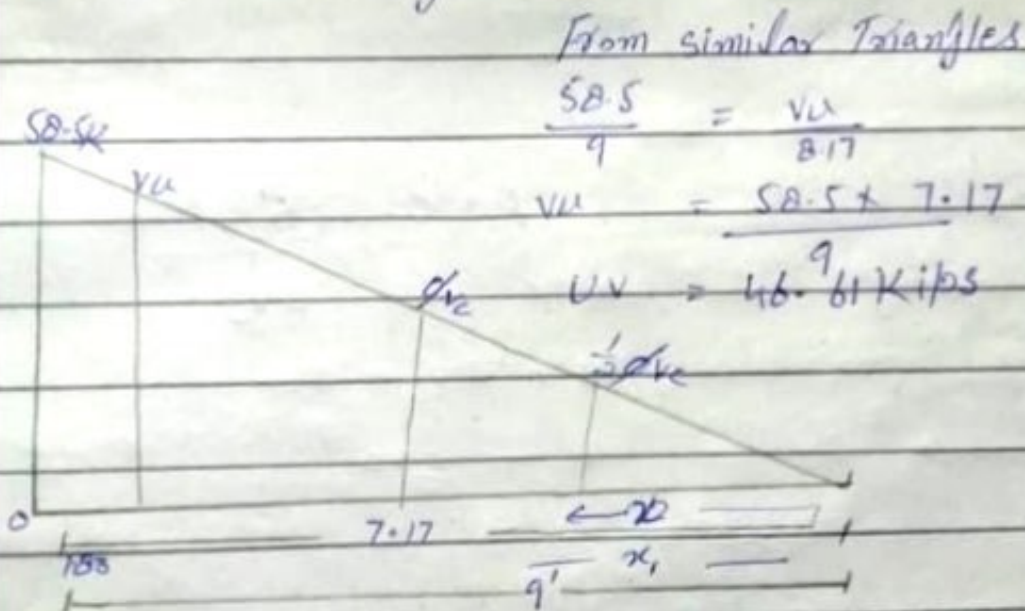 From similar Triangles
58.5 = Vu
9 8.17
Vu = 58.5 x 7.17
9
UV = 46.61 Kips
58.5K
Vu
φVc
½φVc
0
7.17
x2
x1
9'